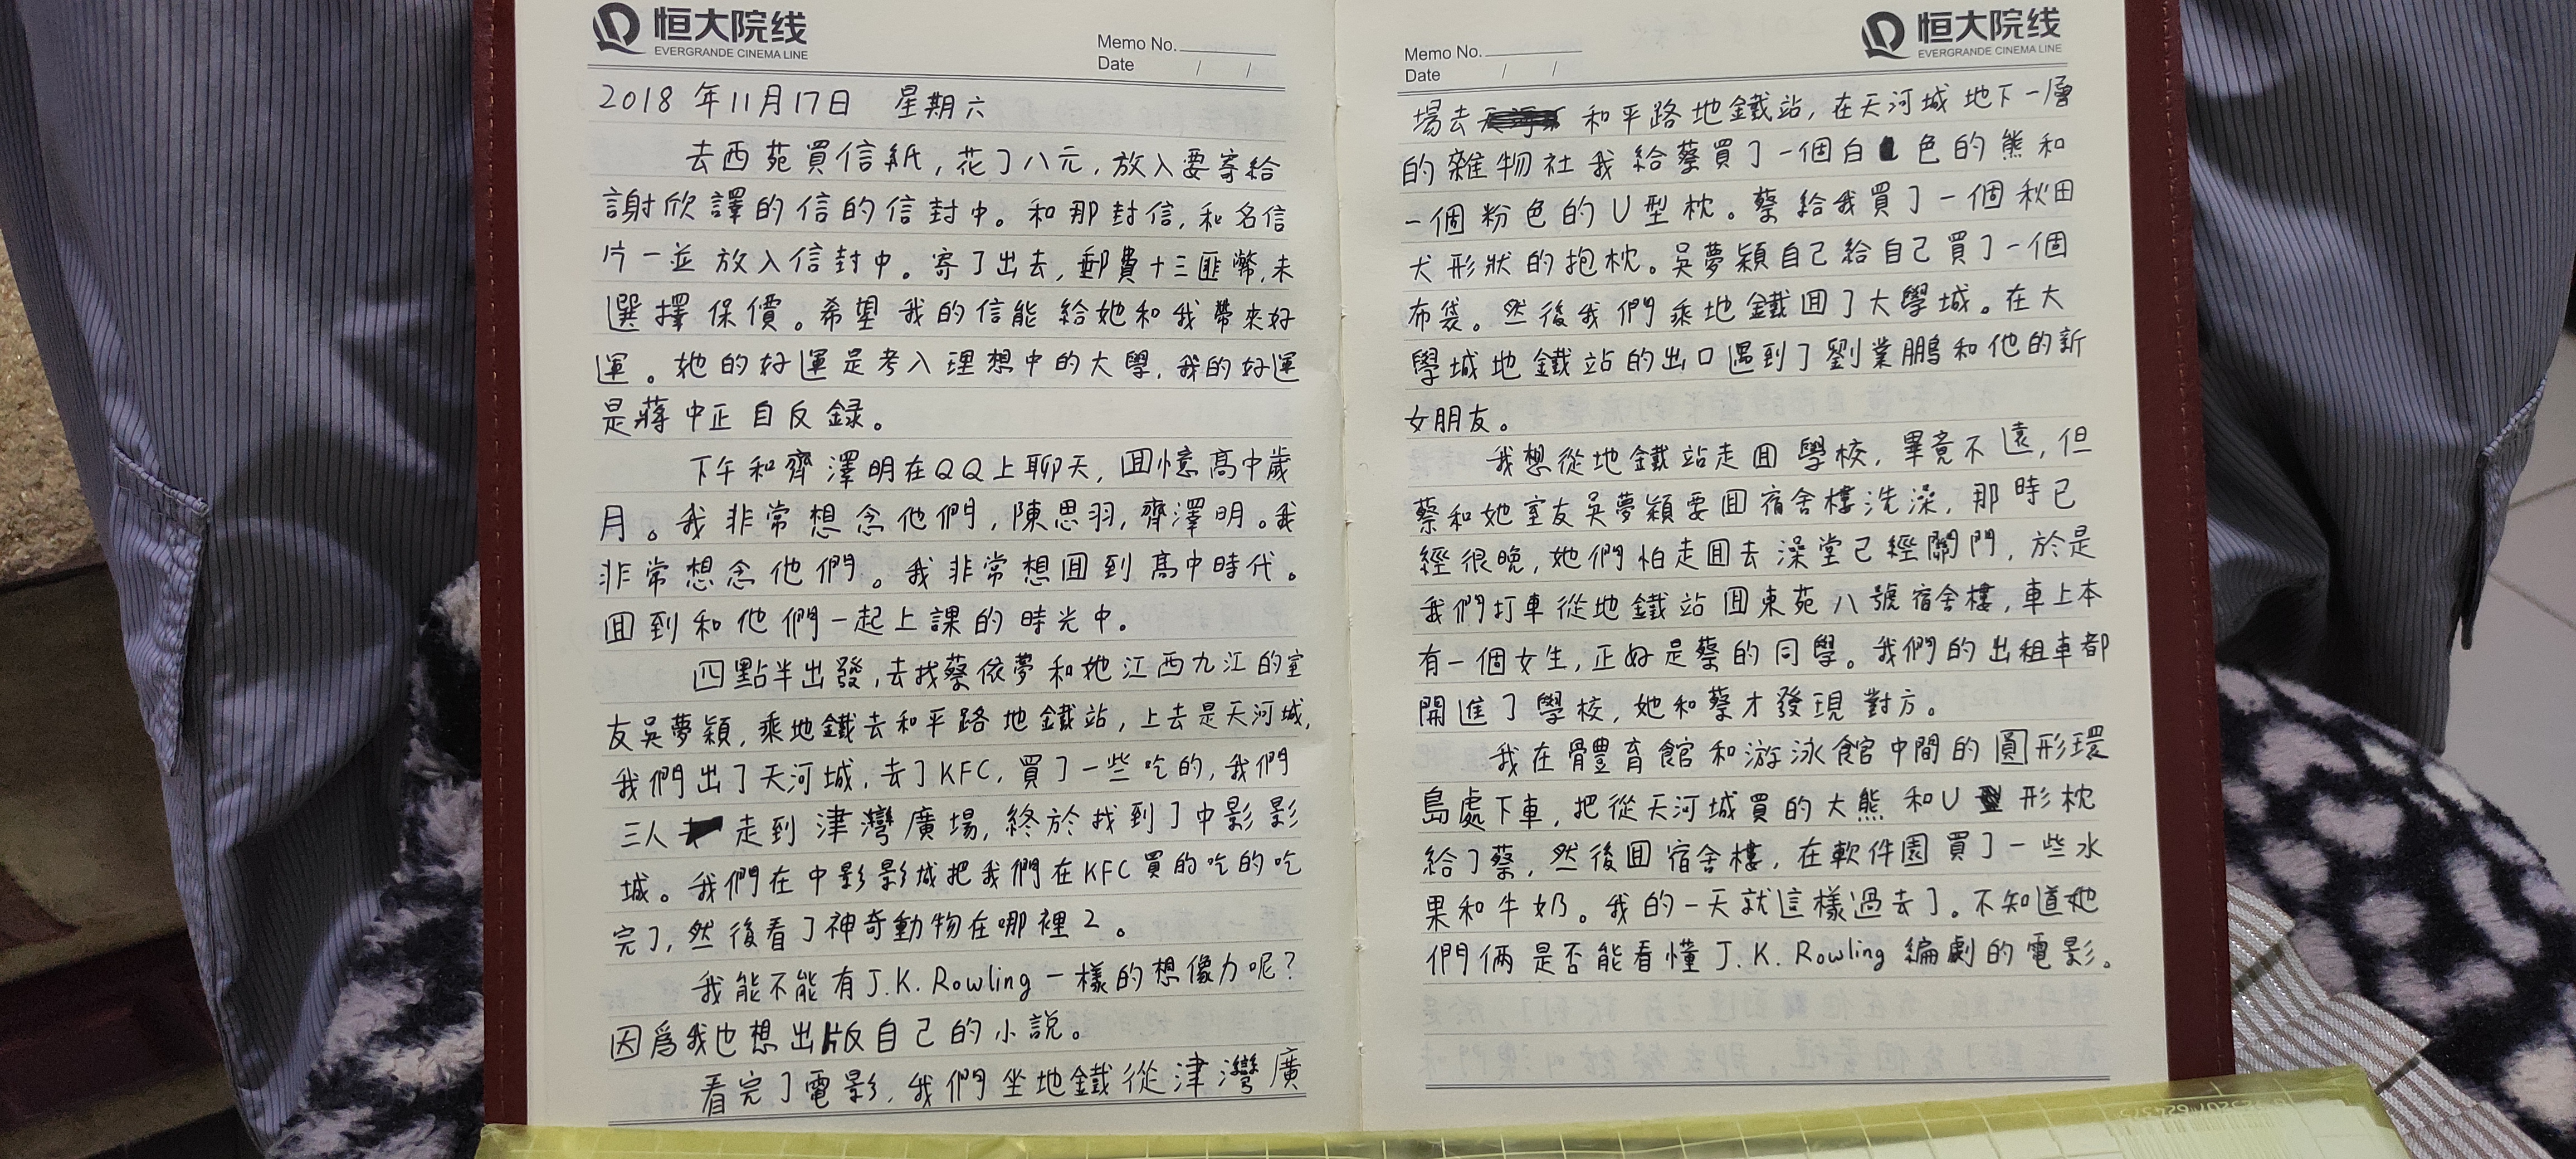 恒大院线
EVERGRANDE CINEMA LINE
Memo No.
Date / /
2018年11月17日 星期六
去西苑買信紙,花了八元,放入要寄給
謝欣譯的信的信封中。和那封信,和名信
片一並放入信封中。寄了出去,郵費十三匪幣,未
選擇保價。希望我的信能給她和我帶來好
運。她的好運是考入理想中的大學,我的好運
是蔣中正自反録。
下午和齊澤明在QQ上聊天,囬憶高中歲
月。我非常想念他們,陳思羽,齊澤明。我
非常想念他們。我非常想囬到高中時代。
囬到和他們一起上課的時光中。
四點半出發,去找蔡依夢和她江西九江的室
友吳夢穎,乘地鐵去和平路地鐵站,上去是天河城,
我們出了天河城,去了KFC,買了一些吃的,我們
三人走到津灣廣場,終於找到了中影影
城。我們在中影影城把我們在KFC買的吃的吃
完了,然後看了神奇動物在哪裡2。
我能不能有J.K.Rowling一樣的想像力呢?
因爲我也想出版自己的小説。
看完了電影,我們坐地鐵從津灣廣
恒大院线
EVERGRANDE CINEMA LINE
Memo No.
Date / /
場去和平路地鐵站,在天河城地下一層
的雜物社我給蔡買了一個白色的熊和
一個粉色的U型枕。蔡給我買了一個秋田
犬形狀的抱枕。吳夢穎自己給自己買了一個
布袋。然後我們乘地鐵囬了大學城。在大
學城地鐵站的出口遇到了劉業鵬和他的新
女朋友。
我想從地鐵站走囬學校,畢竟不遠,但
蔡和她室友吳夢穎要囬宿舍樓洗澡,那時已
經很晚,她們怕走囬去澡堂已經關門,於是
我們打車從地鐵站囬東苑八號宿舍樓,車上本
有一個女生,正好是蔡的同學。我們的出租車都
開進了學校,她和蔡才發現對方。
我在體育館和游泳館中間的圓形環
島處下車,把從天河城買的大熊和U形枕
給了蔡,然後囬宿舍樓,在軟件園買了一些水
果和牛奶。我的一天就這樣過去了。不知道她
們俩是否能看懂J.K.Rowling編劇的電影。